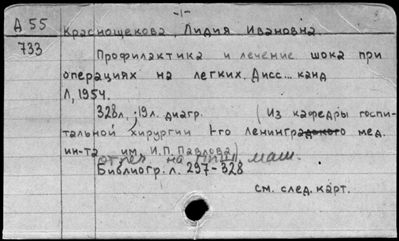 -1-
Д 55
733
Краснощекова, Лидия Ивановна.
Профилактика и лечение шока при
операциях на легких. Дисс... канд
Л, 1954.
328л., 19л. диагр. (Из кафедры госпи-
тальной хирургии 1-го Ленинградского мед.
ин-та им. И.П. Павлова)
отпеч. на пиш. маш.
Библиогр. л. 297-328
см. след. карт.